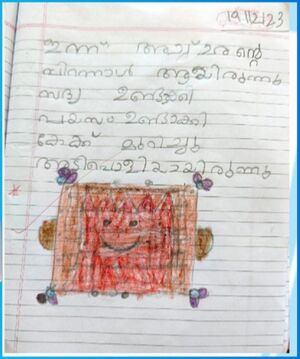 19/12/23
ഇന്ന് അദ്വൈതന്റെ
പിറന്നാൾ ആയിരുന്നു
സദ്യ ഉണ്ടാക്കി
പായസം ഉണ്ടാക്കി
കേക്ക് മുറിച്ചു
അടിപൊളിയായിരുന്നു